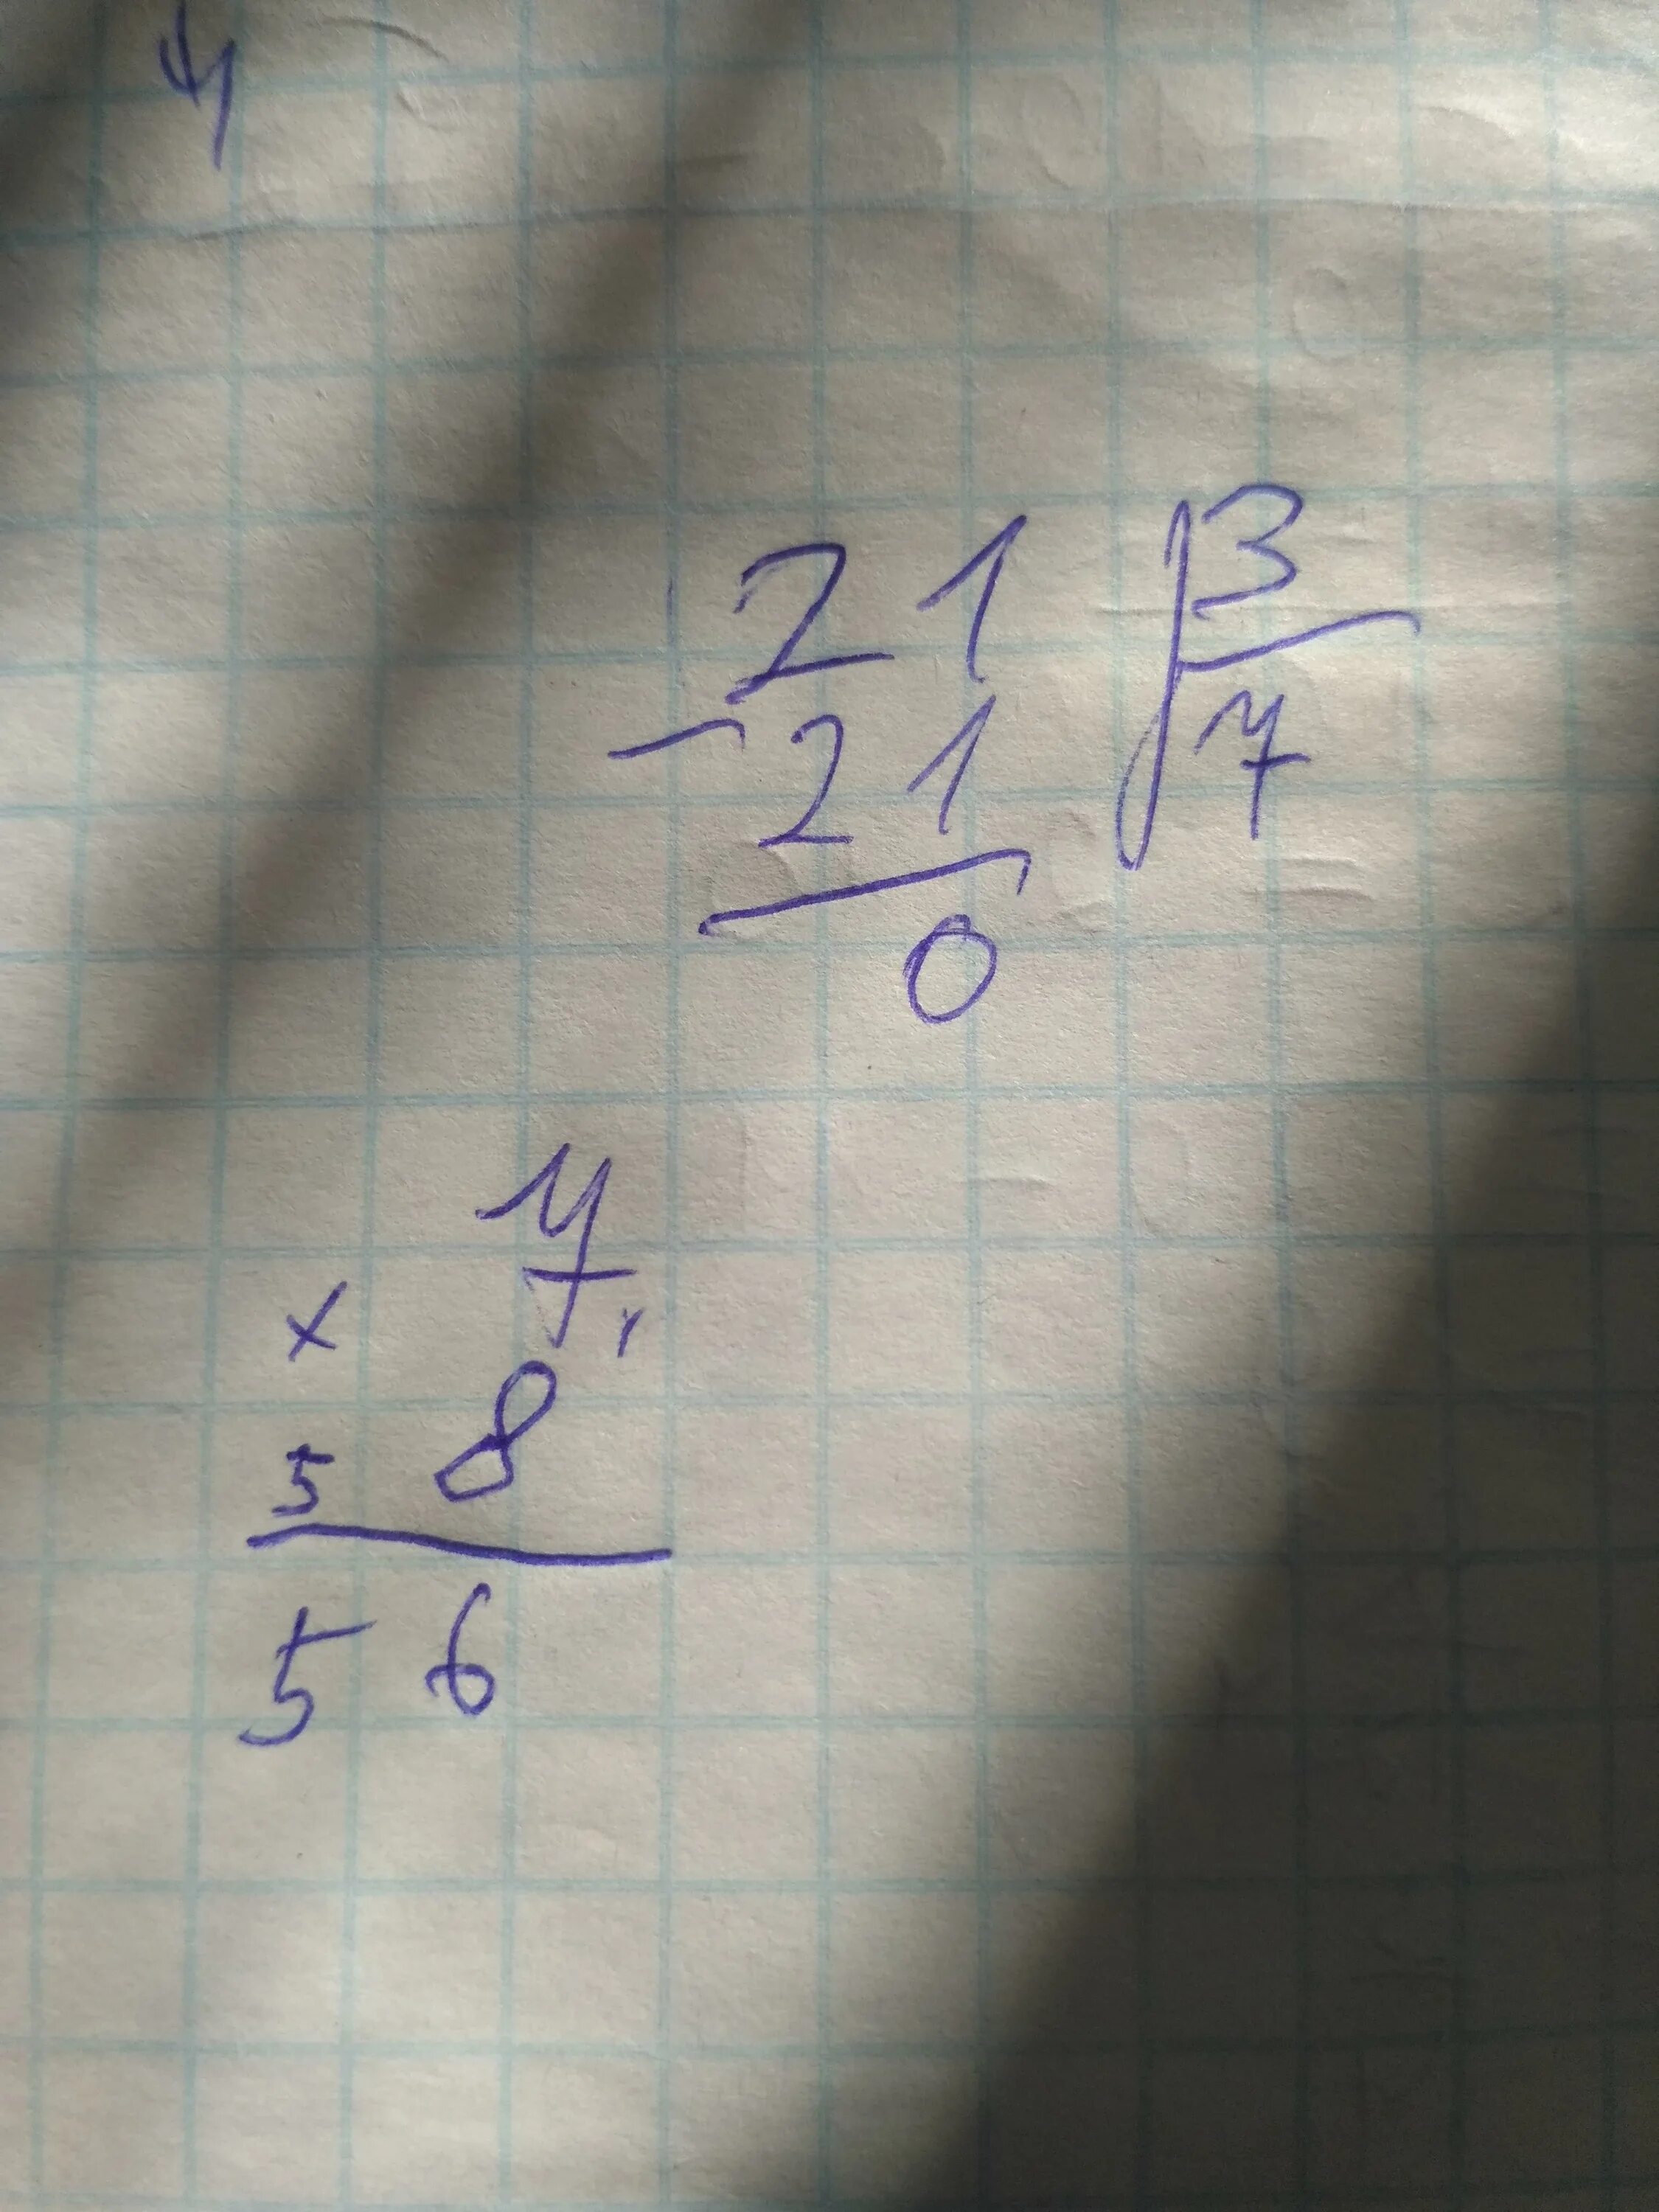 4
21 | 3
- 21 | 7
0
7
×
8
5
56